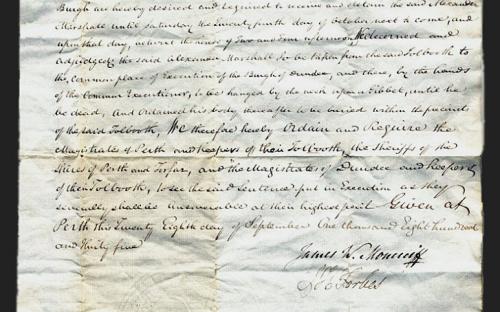 Burgh are hereby desired and required to receive and detain the said Alexander
Marshall until Saturday the Twenty fourth day of October next to come, and
upon that day, betwixt the hours of Two and Four afternoon, We decerned and
adjudged the said Alexander Marshall to be taken from the said Tolbooth to
the common place of Execution of the Burgh of Dundee, and there, by the hands
of the Common Executioner, to be hanged by the neck upon a Gibbet, until he
be dead, And Ordained his body thereafter to be buried within the precincts
of the said Tolbooth, We therefore hereby Ordain and Require the
Magistrates of Perth and keepers of their Tolbooth, the Sheriffs of the
Shires of Perth and Forfar, and the Magistrates of Dundee and keepers
of their Tolbooth, to see the said Sentence put in Execution as they
severally shall be answerable at their highest peril Given at
Perth this Twenty Eighth day of September One thousand Eight hundred
and thirty five
James W. Moncreiff
Forbes